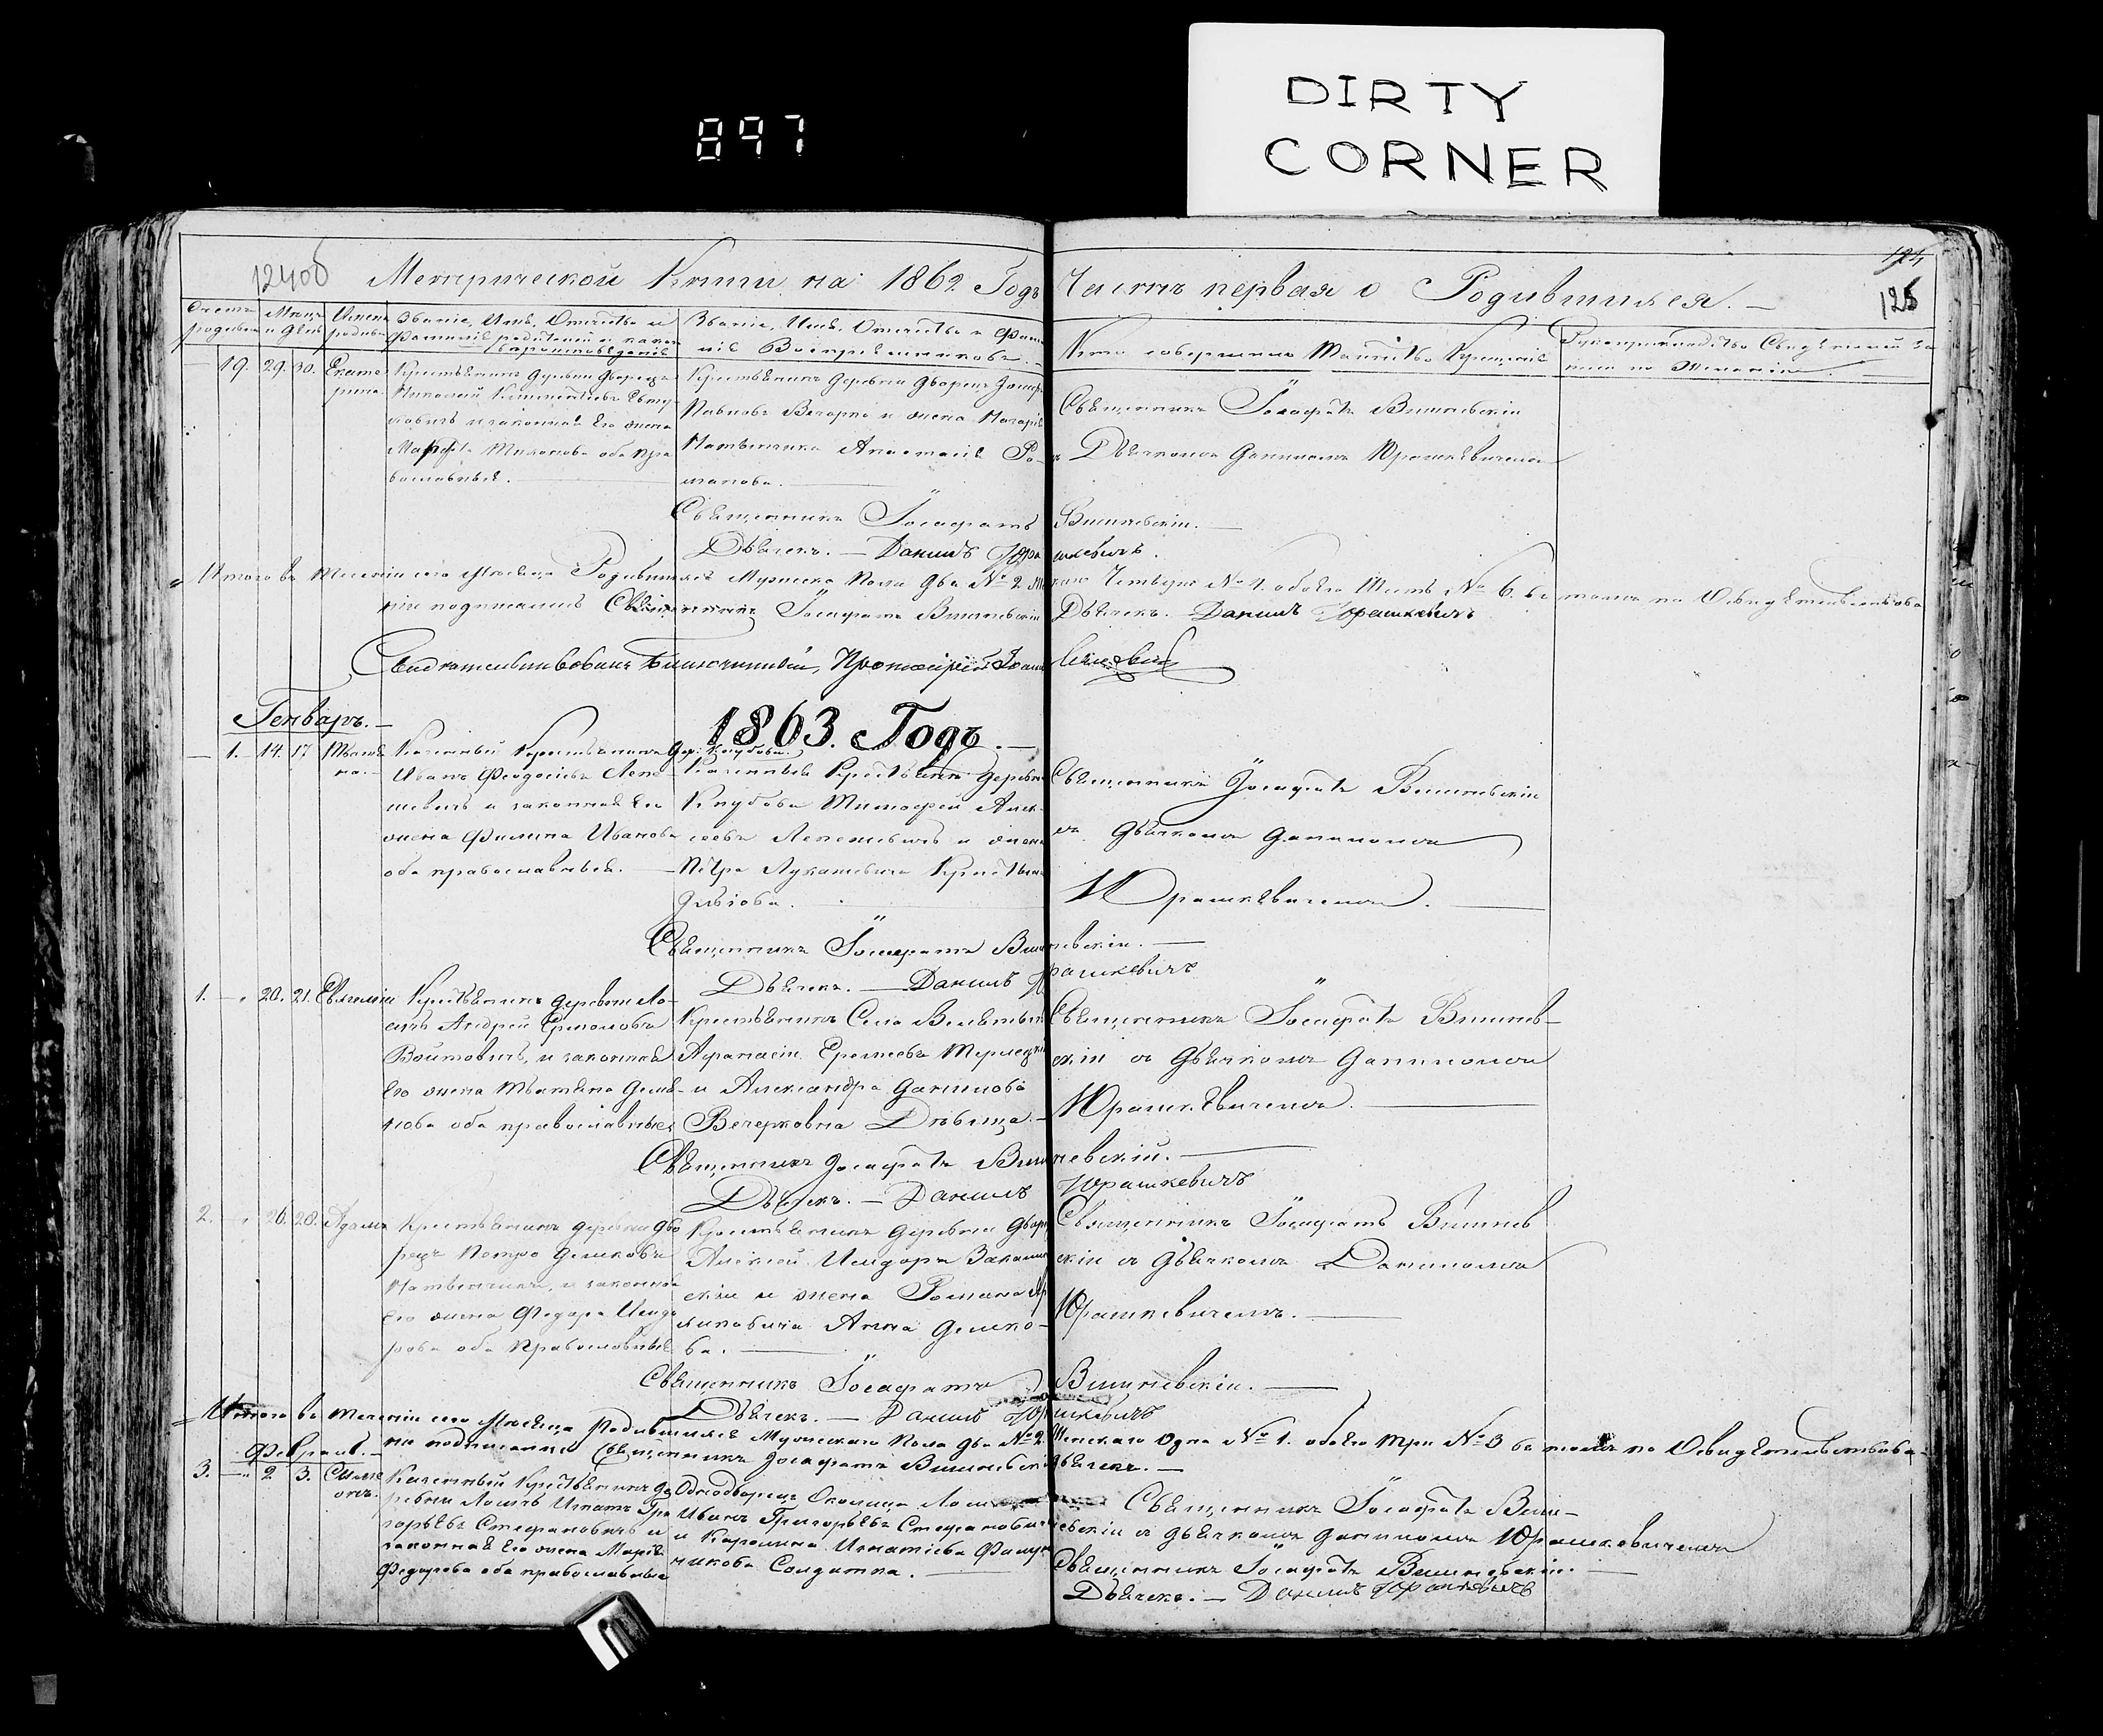 897
DIRTY
CORNER
124об
Метрической Книги на 1862 Годъ Часть первая о Родившихся.
124
125
Званіе, Имя, Отчество и
Фамилія родителей и какого
вѣроисповѣданія
Званіе, Имя, Отчество и Фами-
лія Воспріемниковъ.
Кто совершалъ Таинство Крещенія
19. 29. 30. Екате
рина.
Крестьянинъ деревни Дворецъ
Николай
и законная Его жена
Тихонова оба пра
вославныя.
Крестьянинъ деревни Дворецъ
Павловъ Вечорко и жена
Матвейчика Анастасія Ро-
манова.
Священникъ Іосафатъ Вишневскій
съ Дьячкомъ Даниломъ Юрашкевичемъ
Священникъ Іосафатъ Вишневскій.
Дьячекъ. — Данилъ Юрашкевичъ.
Итого въ теченіи сего Мѣсяца Родившихся Мужеска Пола два № 2. Женска Четыре № 4. обоего Шесть № 6. въ томъ по Освидѣтельствова
ніи подписались Священникъ Іосафатъ Вишневскій Дьячекъ. Данилъ Юрашкевичъ
Свидѣтельствовалъ Благочинный, Протоіерей Іоаннъ
Генварь.
1863. Годъ.
1. 14. 17 Татья
на.
Казенный Крестьянинъ дер. Кнубова
Иванъ Феодосіевъ Лепе-
шевичъ и законная Его
жена Филипа Иванова
оба православныя.
Казенный Крестьянинъ деревни
Кнубова Тимофей Алек-
сеевъ Лепешевичъ и жена
Петра Лукашевича Кристина
Священникъ Іосафатъ Вишневскій
съ дьячкомъ Даниломъ
Юрашкевичемъ.
Священникъ Іосафатъ Вишневскій.
Дьячекъ. — Данилъ Юрашкевичъ
1. 20. 21. Евгеній
Крестьянинъ деревни Ло-
Андрей Ермоловъ
Войтовичъ, и законная
Его жена Татьяна Демья-
нова оба православные
Крестьянинъ Села
Афанасій Еремеевъ
и Александра Данилова
Вечерковна Дѣвица.
Священникъ Іосафатъ Вишнев-
скій съ Дьячкомъ Даниломъ
Юрашкевичемъ.
Священникъ Іосафатъ Вишневскій.
Дьячекъ. — Данилъ Юрашкевичъ
2. 26. 28. Адамъ
Крестьянинъ деревни Дво
рецъ Петро Демковъ
Матвейчикъ, и законная
Его жена Федора Исидо
рова оба Православныя
Крестьянинъ деревни Дворецъ
Алексей Исидоръ
скій и жена Романа
Анна Демко-
ва.
Священникъ Іосафатъ Вишнев
скій съ Дьячкомъ Даниломъ
Юрашкевичемъ.
Священникъ Іосафатъ Вишневскій.
Дьячекъ. — Данилъ Юрашкевичъ
Итого въ теченіи сего Мѣсяца Родившихся Мужескаго Пола два № 2. Женскаго Одна № 1. обоего три № 3 въ томъ по Освидѣтельствова-
ніи подписались Священникъ Іосафатъ Вишневскій Дьячекъ. —
Февраль.
3. 2. 3. Симе
онъ.
Казенный Крестьянинъ де
ревни Лошь Игнатъ Гри
горьевъ Стефановичъ и
законная Его жена Марія
Федорова оба православныя
Однодворецъ Околицы
Иванъ Григорьевъ Стефановичъ
и Каролина Игнатіева
Солдатка.
Священникъ Іосафатъ Виш-
невскій съ дьячкомъ Даниломъ Юрашкевичемъ
Священникъ Іосафатъ Вишневскій.
Дьячекъ. — Данилъ Юрашкевичъ